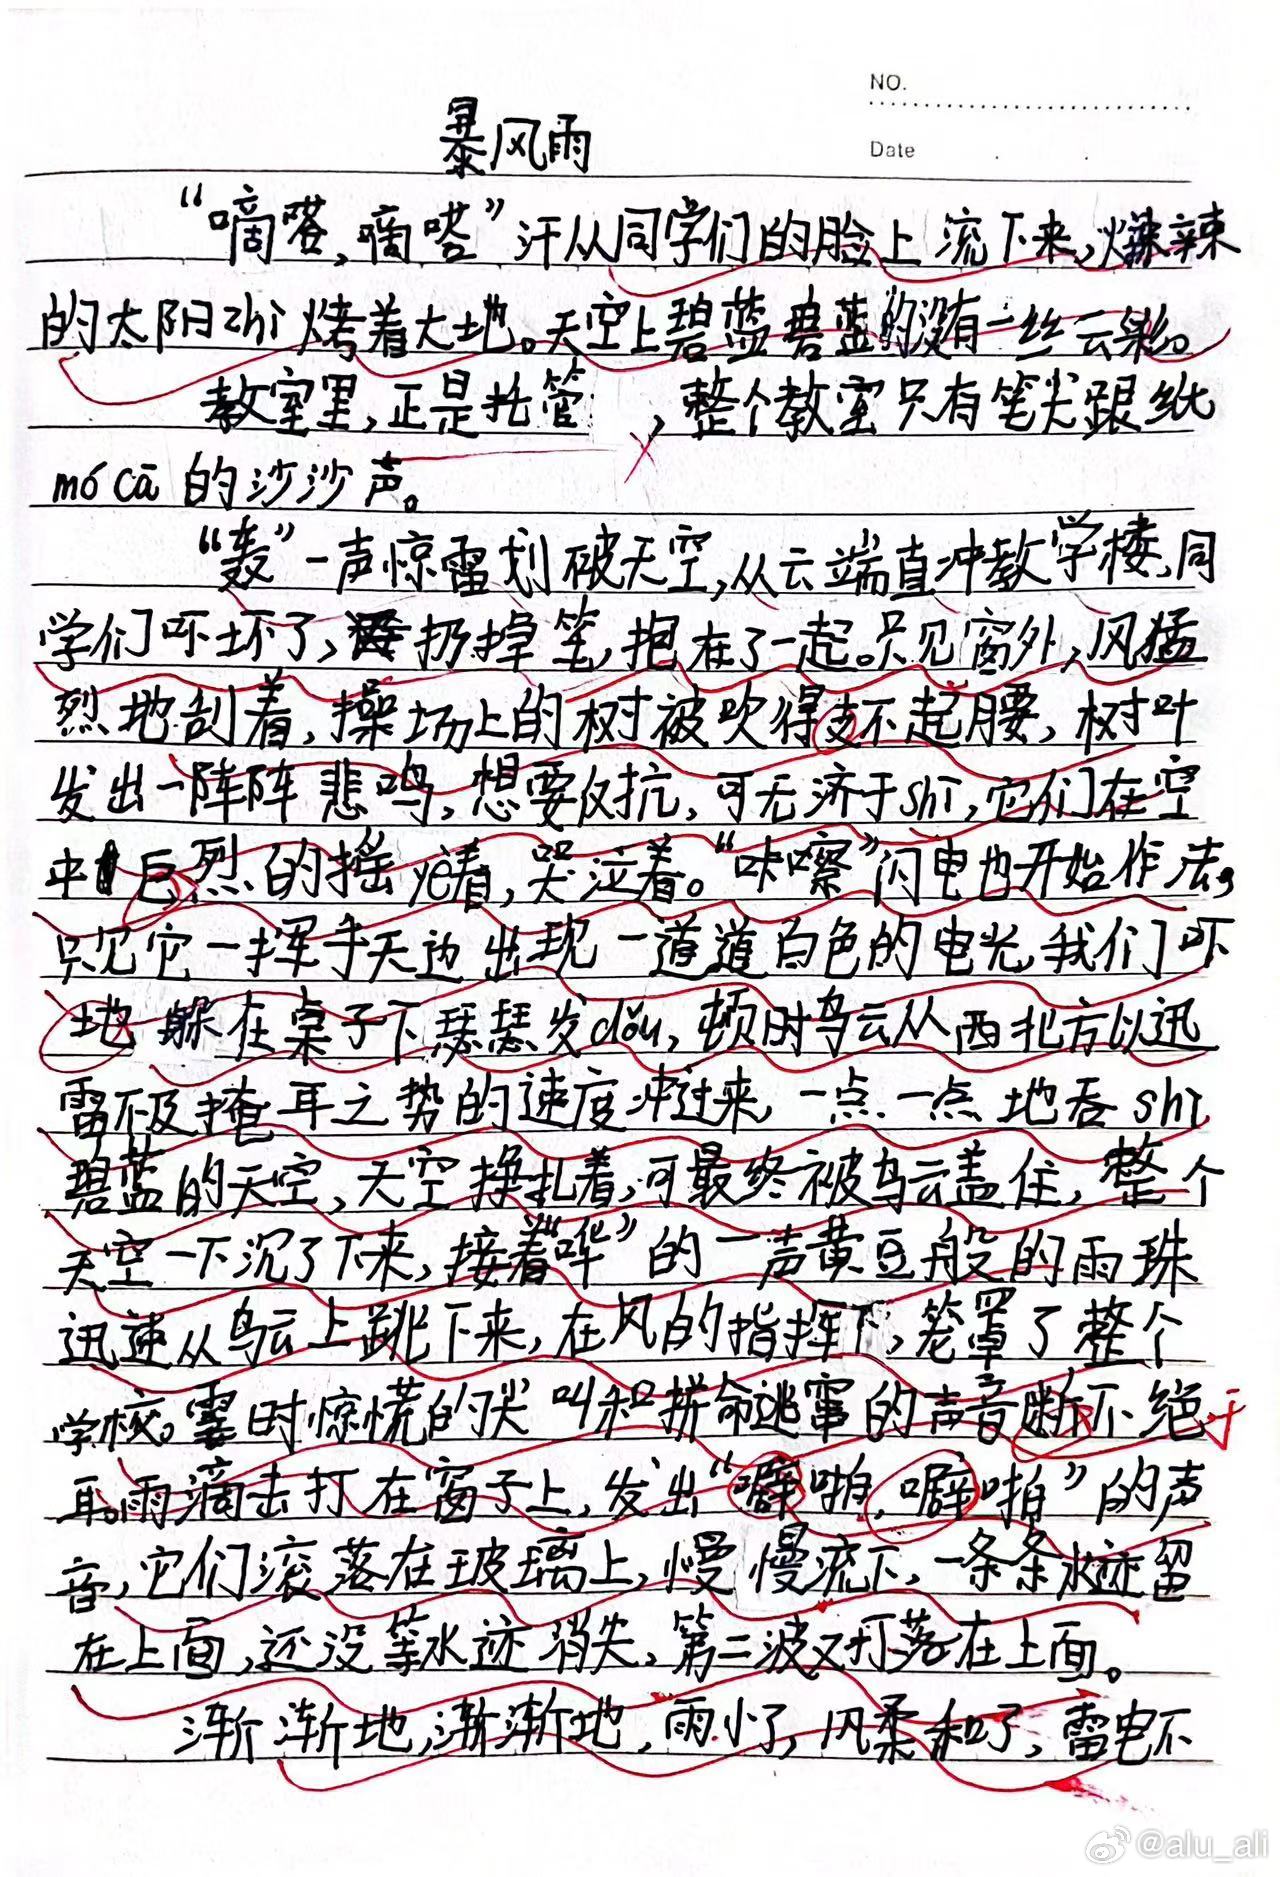 NO.
Date
暴风雨
“嘀嗒,嘀嗒”汗从同学们的脸上流下来,火辣辣
的太阳zhì烤着大地。天空上碧蓝碧蓝的没有一丝云彩。
教室里,正是托管,整个教室只有笔尖跟纸
mó cā的沙沙声。
“轰”一声惊雷划破天空,从云端直冲教学楼,同
学们吓坏了,扔掉笔,抱在了一起。只见窗外,风猛
烈地刮着,操场上的树被吹得支不起腰,树叶
发出一阵阵悲鸣,想要反抗,可无济于shì,它们在空
中巨烈的摇yè着,哭泣着。“咔嚓”闪电也开始作法,
只见它一挥手天边出现一道道白色的电光,我们吓
地躲在桌子下瑟瑟发dǒu,顿时乌云从西北方以迅
雷不及掩耳之势的速度冲过来,一点一点地吞shì
碧蓝的天空,天空挣扎着,可最终被乌云盖住,整个
天空一下沉了下来,接着“哗”的一声黄豆般的雨珠
迅速从乌云上跳下来,在风的指挥下,笼罩了整个
学校。霎时惊慌的尖叫和拼命逃窜的声音断不绝
耳。雨滴击打在窗子上,发出“噼啪,噼啪”的声
音,它们滚落在玻璃上,慢慢流下,一条条水迹留
在上面,还没等水迹消失,第二波又打落在上面。
渐渐地,渐渐地,雨小了,风柔和了,雷电不
@alu_ali